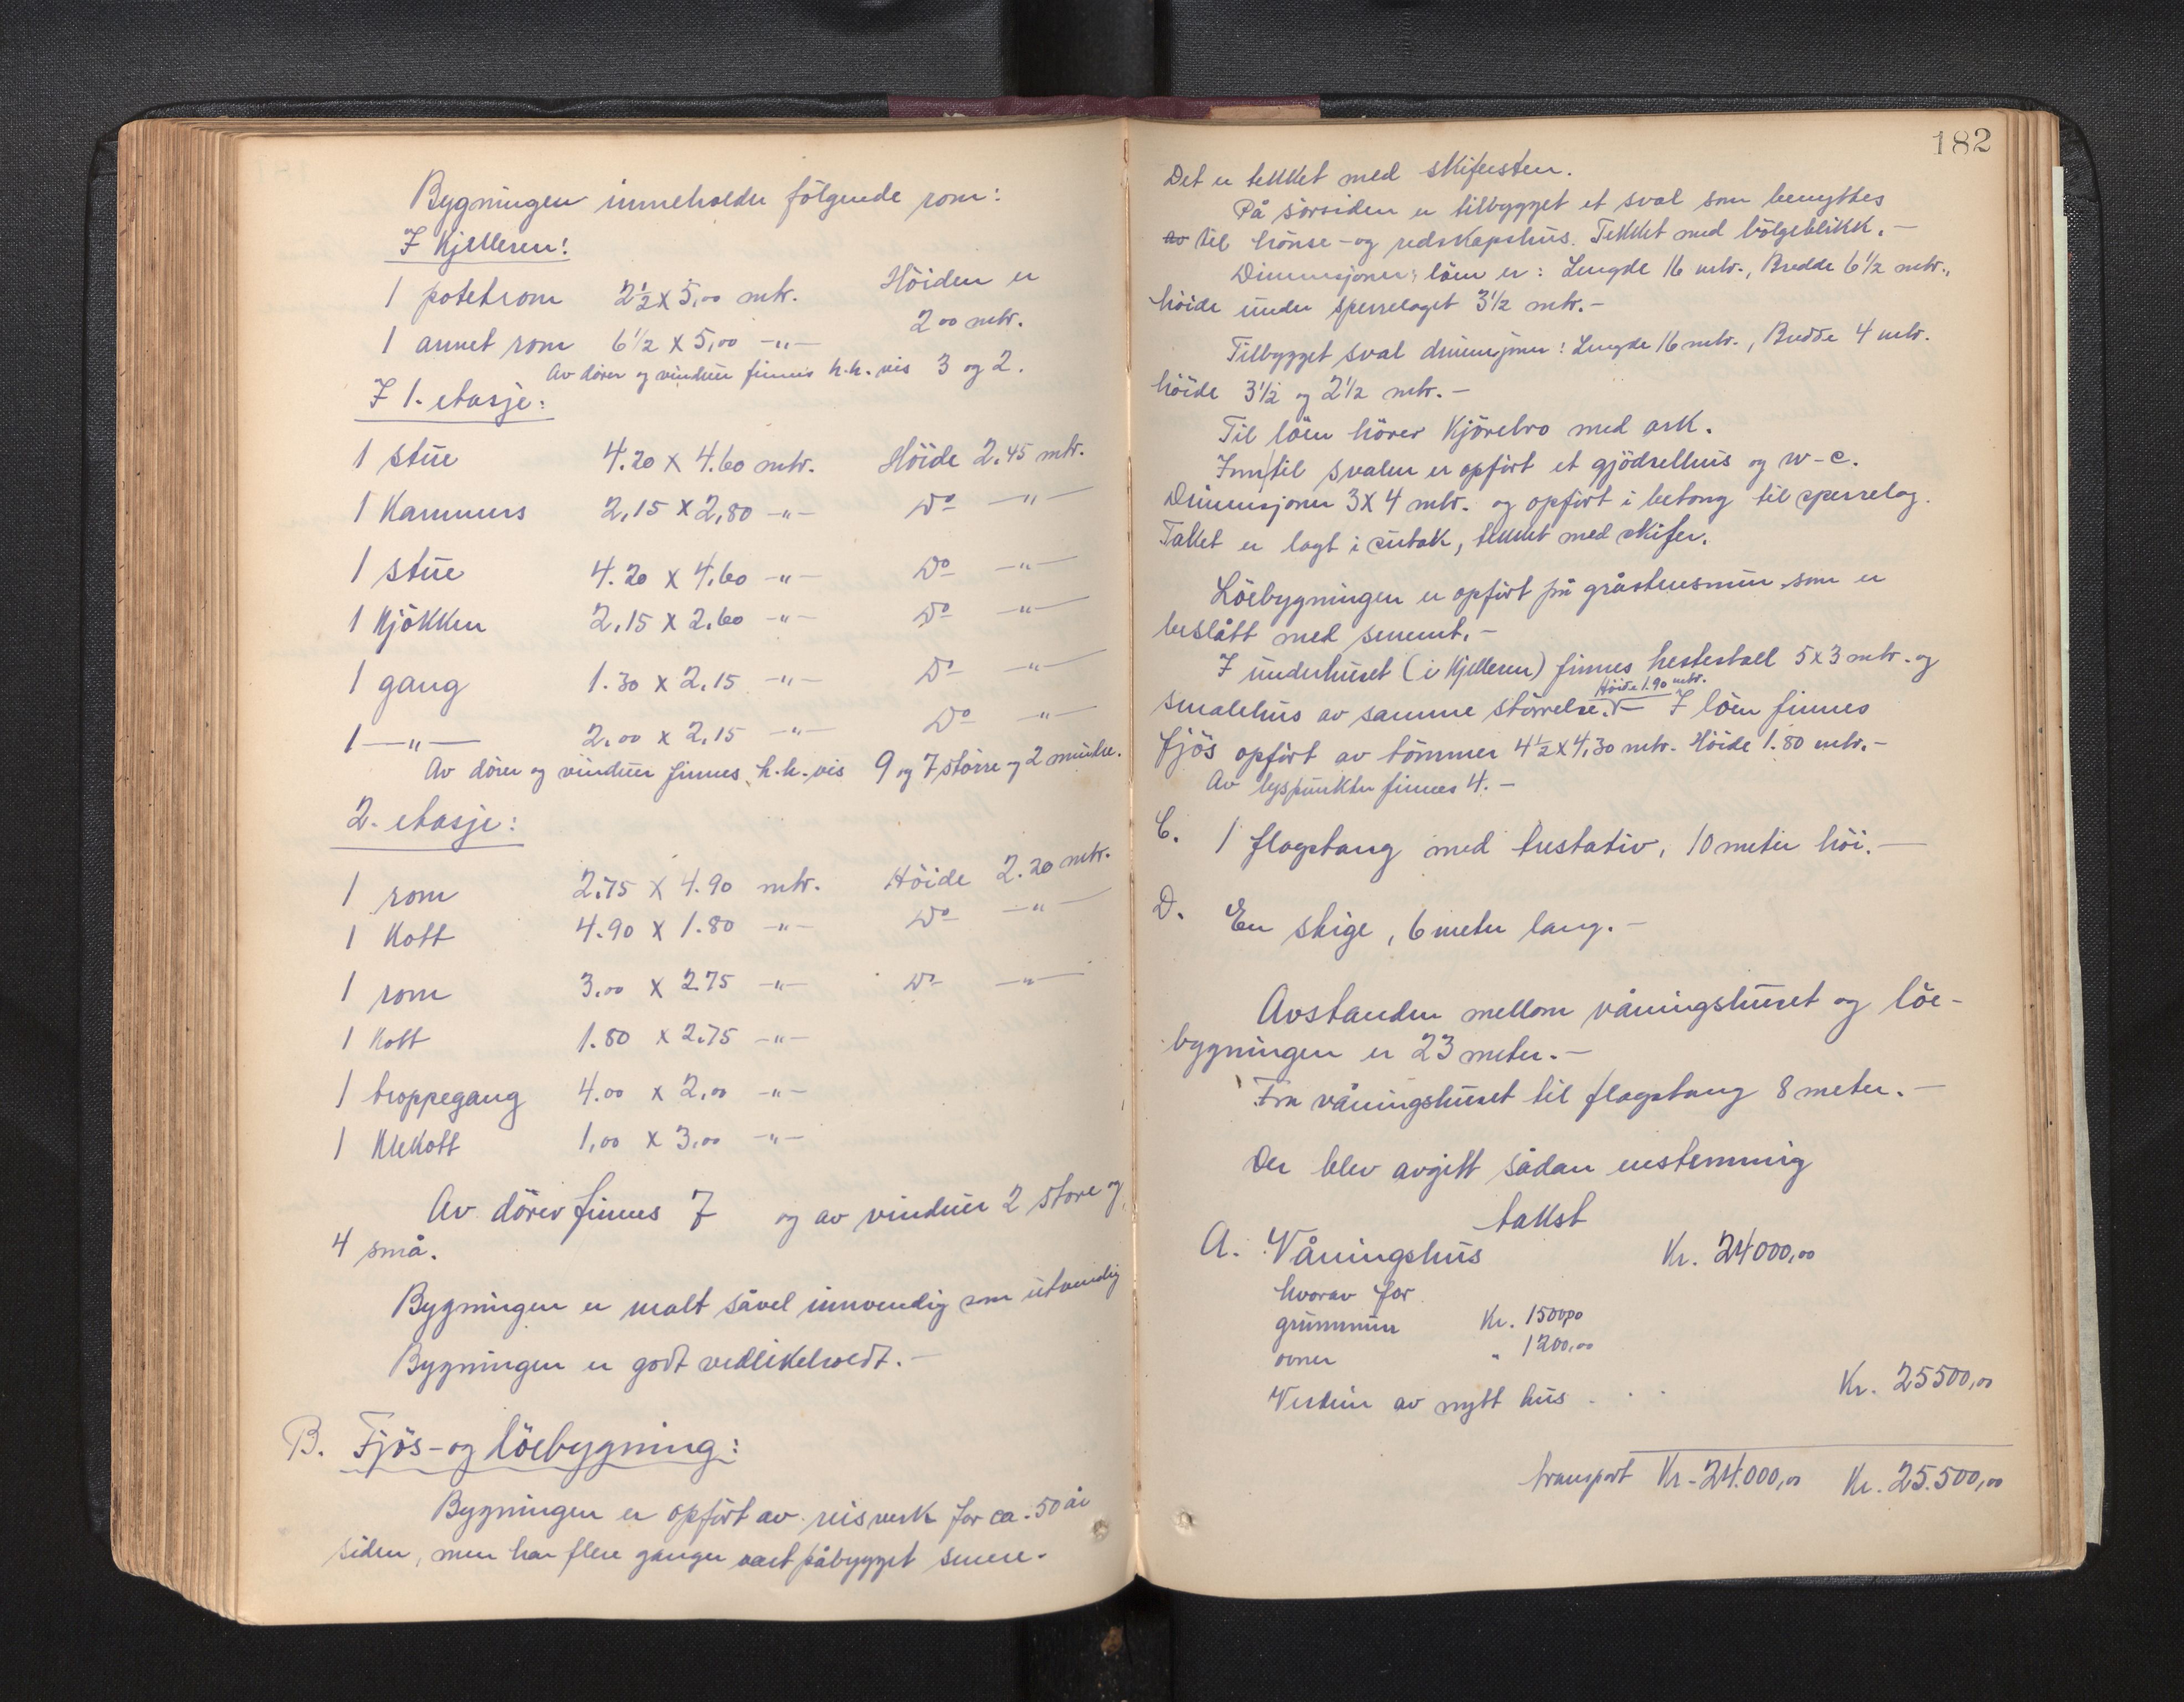 Bygningen inneholder følgende rom:
I Kjelleren:
1 potetrom 2½ x 5,00 mtr. Höiden er
2 00 mtr.
1 annet rom 6½ x 5,00 -"-
Av dører og vinduer finnes h.h.vis 3 og 2.
I 1. etasje:
1 stue 4.20 x 4.60 mtr. Höide 2.45 mtr.
1 Kammers 2,15 x 2,80 -"- Do -"-
1 stue 4.20 x 4,60 -"- Do -"-
1 Kjökken 2,15 x 2,60 -"- Do -"-
1 gang 1.30 x 2.15 -"- Do -"-
1 -"- 2,00 x 2,15 -"- Do -"-
Av dører og vinduer finnes h.h.vis 9 og 7 större og 2 mindre.
2. etasje:
1 rom 2.75 x 4.90 mtr. Höide 2.20 mtr.
1 Kott 4.90 x 1.80 -"- Do -"-
1 rom 3,00 x 2.75 -"- Do -"-
1 Kott 1.80 x 2.75 -"-
1 troppegang 4.00 x 2,00 -"-
1 Klekott 1,00 x 3,00 -"-
Av dörer finnes 7 og av vinduer 2 store og
4 små.
Bygningen er malt såvel innvendig som utvendig
Bygningen er godt vedlikeholdt.-
B. Fjös- og löebygning:
Bygningen er opfört av reisverk for ca. 50 år
siden, men har flere ganger vært påbygget senere.
182
Det er tekket med skifersten.
På sörsiden er tilbygget et sval som benyttes
av til hönse- og redskapshus. Tekket med bölgeblikk.-
Dimensjoner: löen er: Lengde 16 mtr., Bredde 6½ mtr.,
höide under sperrelaget 3½ mtr.-
Tilbygget sval dimensjoner: Lengde 16 mtr., Bredde 4 mtr.
höide 3½ og 2½ mtr.-
Til löen hörer Kjörebro med ark.
Inn til svalen er opfört et gjödselhus og w-c.
Dimensjoner 3x4 mtr. og opfört i betong til sperrelag.
Taket er lagt i sutak, tekket med skifer.
Löebygningen er opfört på gråstensmur som er
beslått med sement.-
I underhuset (i Kjelleren) finnes hestestall 5x3 mtr. og
Höide 1.90 mtr.
smalehus av samme störrelse.- I löen finnes
fjös opfört av tömmer 4½x4,30 mtr. Höide 1.80 mtr.-
Av lyspunkter finnes 4.-
C. 1 flagstang med trestativ, 10 meter höi.-
D. En stige, 6 meter lang.-
Avstanden mellom våningshuset og löe-
bygningen er 23 meter.-
Fra våningshuset til flagstang 8 meter.-
Der blev avgitt sådan enstemmig
takst
A. Våningshus Kr. 24000,00
hvorav for
grunnmur Kr. 1500,00
ovner " 1200,00
Verdien av nytt hus . . . Kr. 25500,00
transport Kr. 24.000,00 Kr. 25.500,00